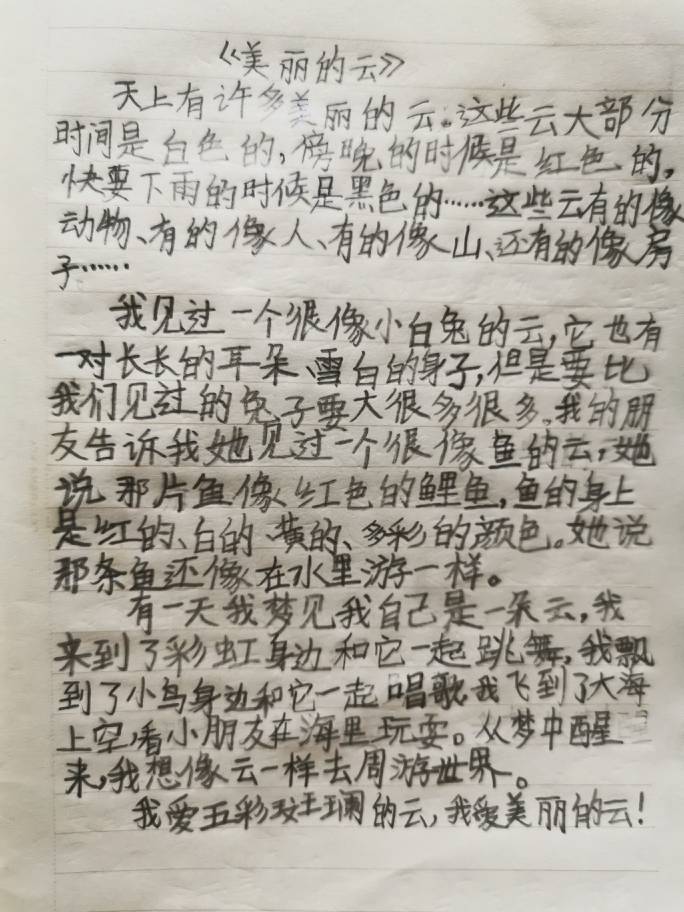 《美丽的云》
天上有许多美丽的云。这些云大部分
时间是白色的,傍晚的时候是红色的,
快要下雨的时候是黑色的……这些云有的像
动物、有的像人、有的像山、还有的像房
子……
我见过一个很像小白兔的云,它也有
一对长长的耳朵、雪白的身子,但是要比
我们见过的兔子要大很多很多。我的朋
友告诉我她见过一个很像鱼的云,她
说那片鱼像红色的鲤鱼,鱼的身上
是红的、白的、黄的、多彩的颜色。她说
那条鱼还像在水里游一样。
有一天我梦见我自己是一朵云,我
来到了彩虹身边和它一起跳舞,我飘
到了小鸟身边和它一起唱歌,我飞到了大海
上空,看小朋友在海里玩耍。从梦中醒
来,我想像云一样去周游世界。
我爱五彩斑斓的云,我爱美丽的云!